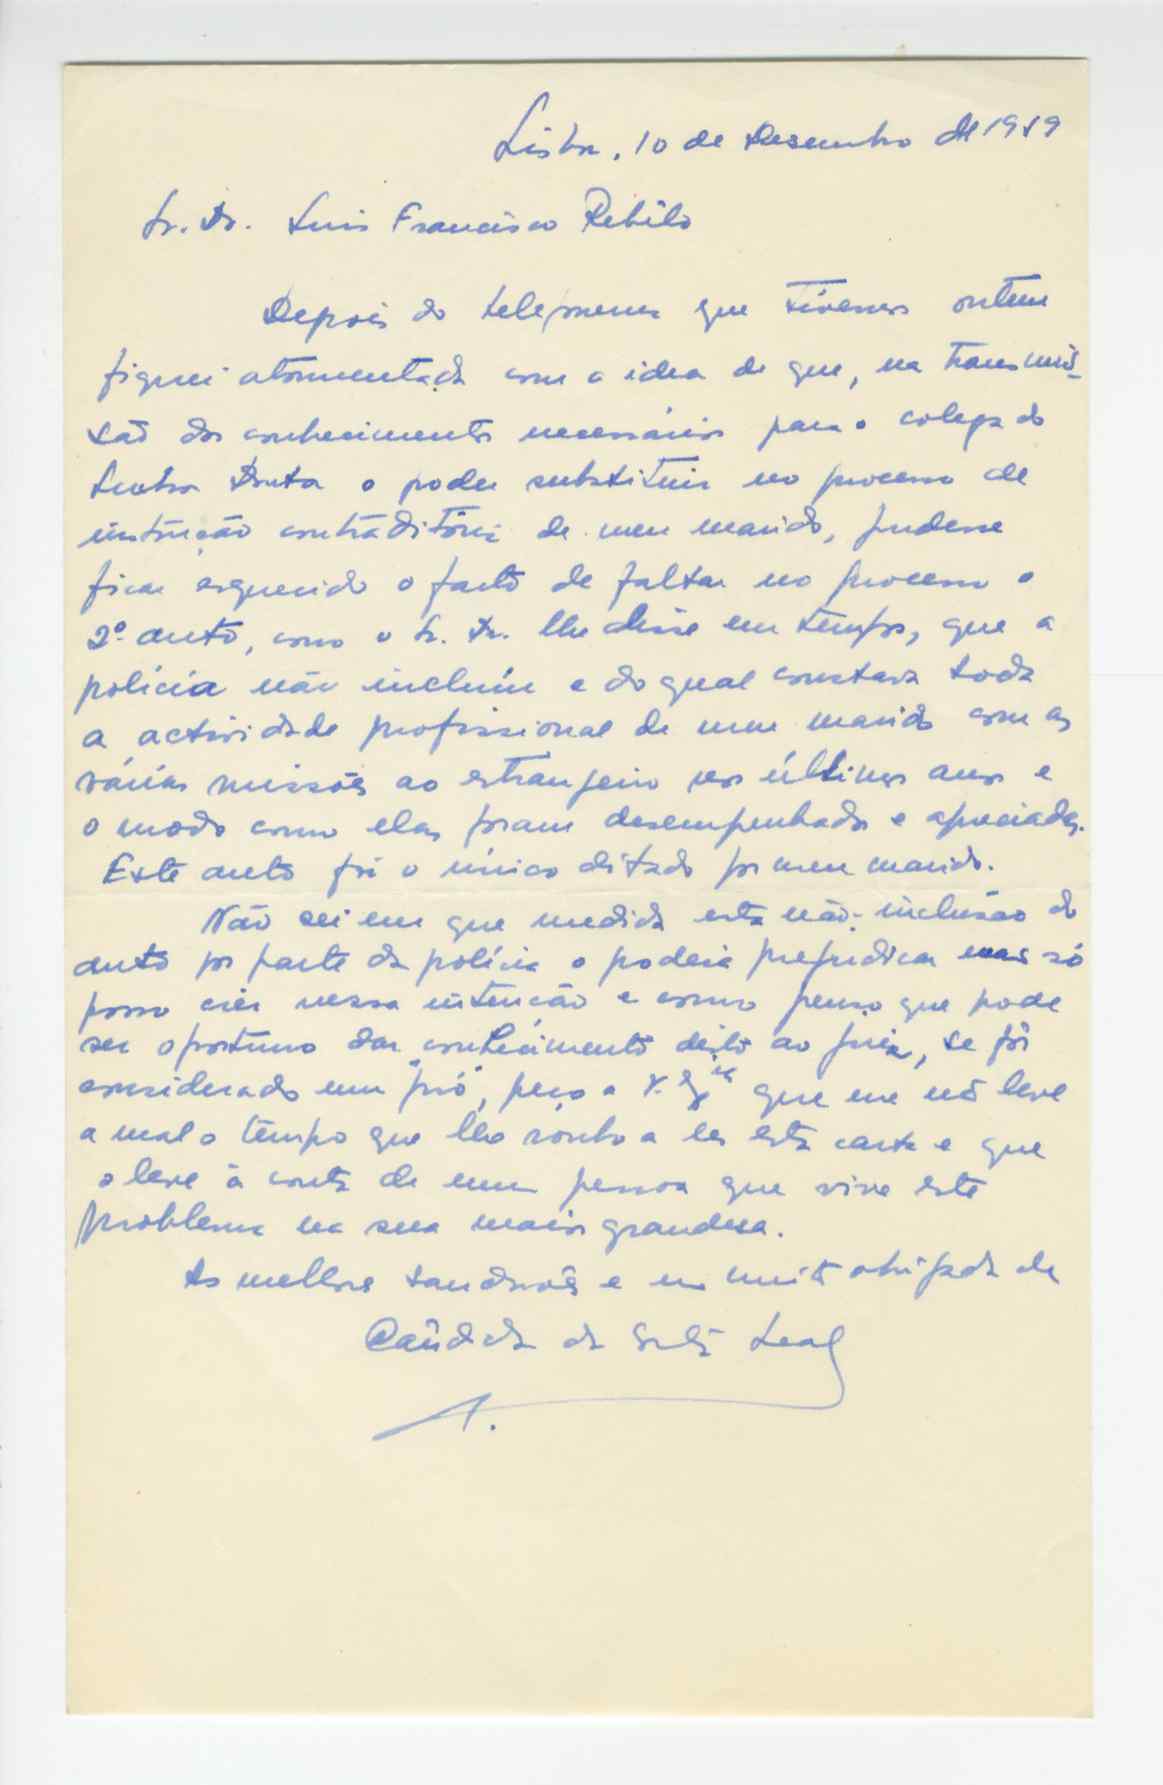 Lisboa, 10 de Dezembro de 1959
Sr. Dr. Luis Francisco Rebêlo
Depois do telefonema que tivemos ontem
fiquei atormentada com a idea de que, na transmis-
são dos conhecimentos necessários para o colega do
Senhor Doutor o poder substituir no processo de
instrução contraditória de meu marido, pudesse
ficar esquecido o facto de faltar no processo o
2º auto, como o Sr. Dr. lhe disse em tempos, que a
polícia não incluíu e do qual constava toda
a actividade profissional de meu marido com as
várias missões ao estrangeiro nos últimos anos e
o modo como elas foram desempenhadas e apreciadas.
Este auto foi o único ditado por meu marido.
Não sei em que medida esta não-inclusão do
auto por parte da polícia o poderia prejudicar mas só
posso crer nessa intenção e como penso que pode
ser oportuno dar conhecimento disto ao juiz, se fôr
considerado um "pró", peço a V. Exª que me não leve
a mal o tempo que lhe roubo a ler esta carta e que
o leve à conta de uma pessoa que vive este
problema na sua maior grandeza.
As melhores saudações e um muito obrigada da
Cândida da Leal